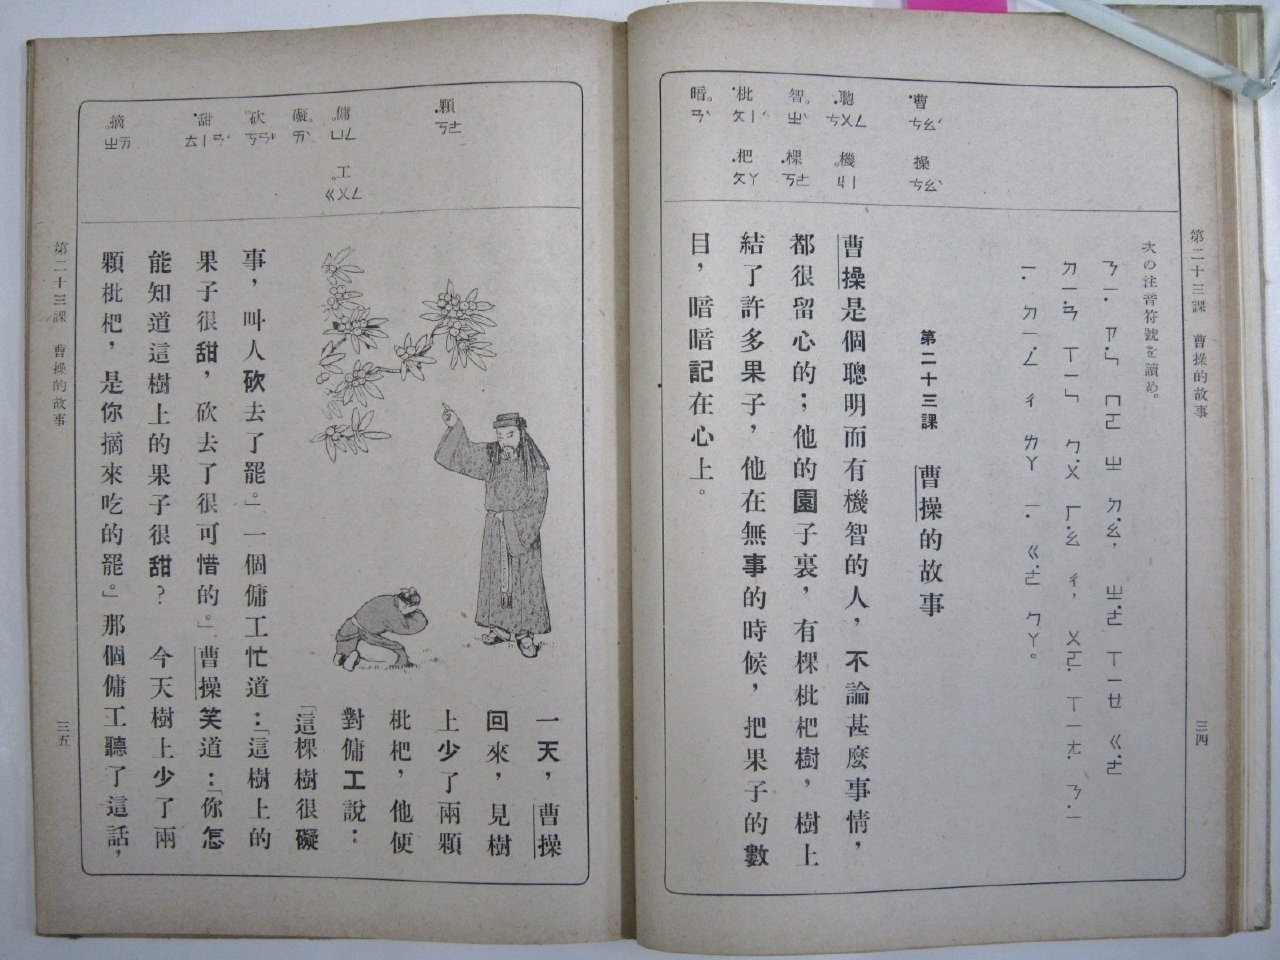 第二十三課 曹操的故事
三四
次の注音符號を讀め。
第二十三課 曹操的故事
曹操是個聰明而有機智的人，不論甚麼事情，
都很留心的；他的園子裏，有棵枇杷樹，樹上
結了許多果子，他在無事的時候，把果子的數
目，暗暗記在心上。
曹 ㄘㄠˊ 操 ㄘㄠˋ
聰 ㄘㄨㄥ 機 ㄐㄧ
智 ㄓˋ 棵 ㄎㄜ
枇 ㄆㄧˊ 杷 ㄆㄚ
暗 ㄢˋ
一天，曹操
回來，見樹
上少了兩顆
枇杷，他便
對傭工說：
「這棵樹很礙
事，叫人砍去了罷。」一個傭工忙道：「這樹上的
果子很甜，砍去了很可惜的。」曹操笑道：「你怎
能知道這樹上的果子很甜？今天樹上少了兩
顆枇杷，是你摘來吃的罷。」那個傭工聽了這話，
顆 ㄎㄜ
傭 ㄩㄥ 工 ㄍㄨㄥ
礙 ㄞˋ
砍 ㄎㄢˇ
甜 ㄊㄧㄢˊ
摘 ㄓㄞ
第二十三課 曹操的故事
三五